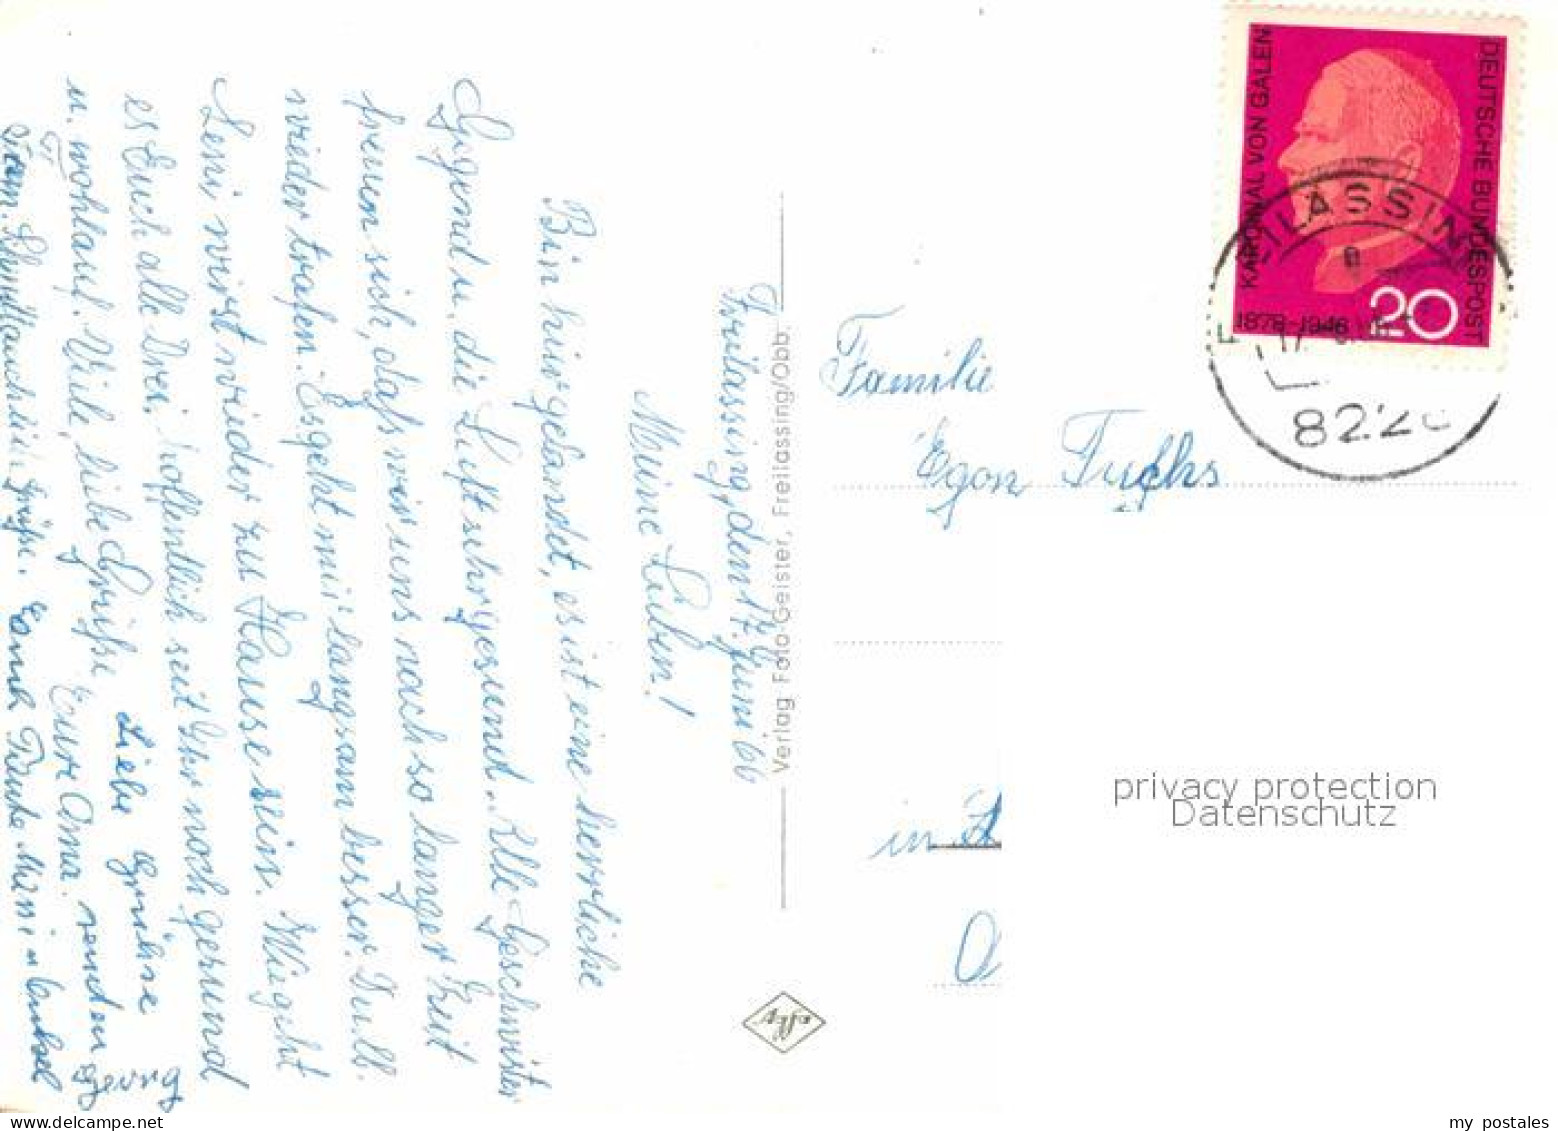 Freilassing, den 17. Juni 66
Meine Lieben!
Bin hier gelandet, es ist eine herrliche
Gegend u. die Luft sehr gesund. Alle Geschwister
freuen sich, daß wir uns nach so langer Zeit
wieder trafen. Es geht mir langsam besser. Du lb.
Leni, wirst wieder zu Hause sein. Wie geht
es Euch alle Drei, hoffentlich seit Ihr noch gesund
u. wohlauf. Viele, liebe Grüße Eure Oma.
Liebe Grüße senden Georg
Grüße. Tante u. Onkel
Verlag Foto Geister, Freilassing/Obb.
Agfa
KARDINAL VON GALEN
DEUTSCHE BUNDESPOST
1878-1946
20
FREILASSING
a
822
Familie
Egon Fuchs
in
privacy protection
Datenschutz
my postales